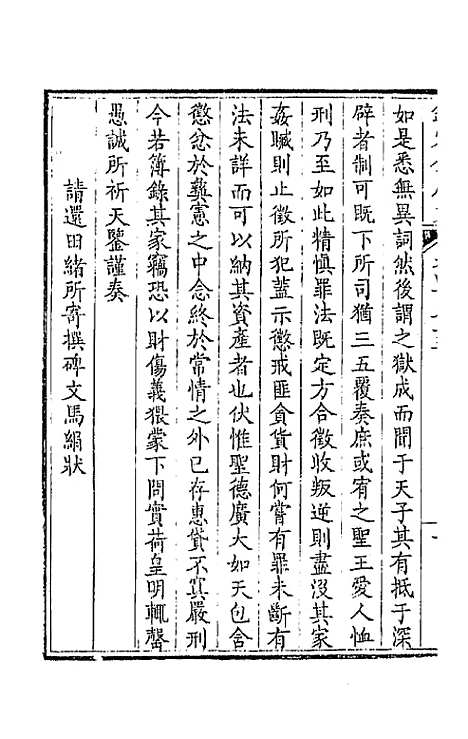 如是悉無異詞然後謂之獄成而聞于天子其有抵于深
辟者制可既下所司猶三五覆奏庶或宥之聖王愛人恤
刑乃至如此精慎罪法既定方合徵收叛逆則盡沒其家
姦贓則止徵所犯蓋示懲戒匪貪貨財何嘗有罪未斷有
法未詳而可以納其資產者也伏惟聖德廣大如天包含
懲忿於彝憲之中念終於常情之外已存惠貸不寘嚴刑
今若簿錄其家竊恐以財傷義猥蒙下問實荷皇明輒罄
愚誠所祈天鑒謹奏
請還田緒所寄撰碑文馬絹狀